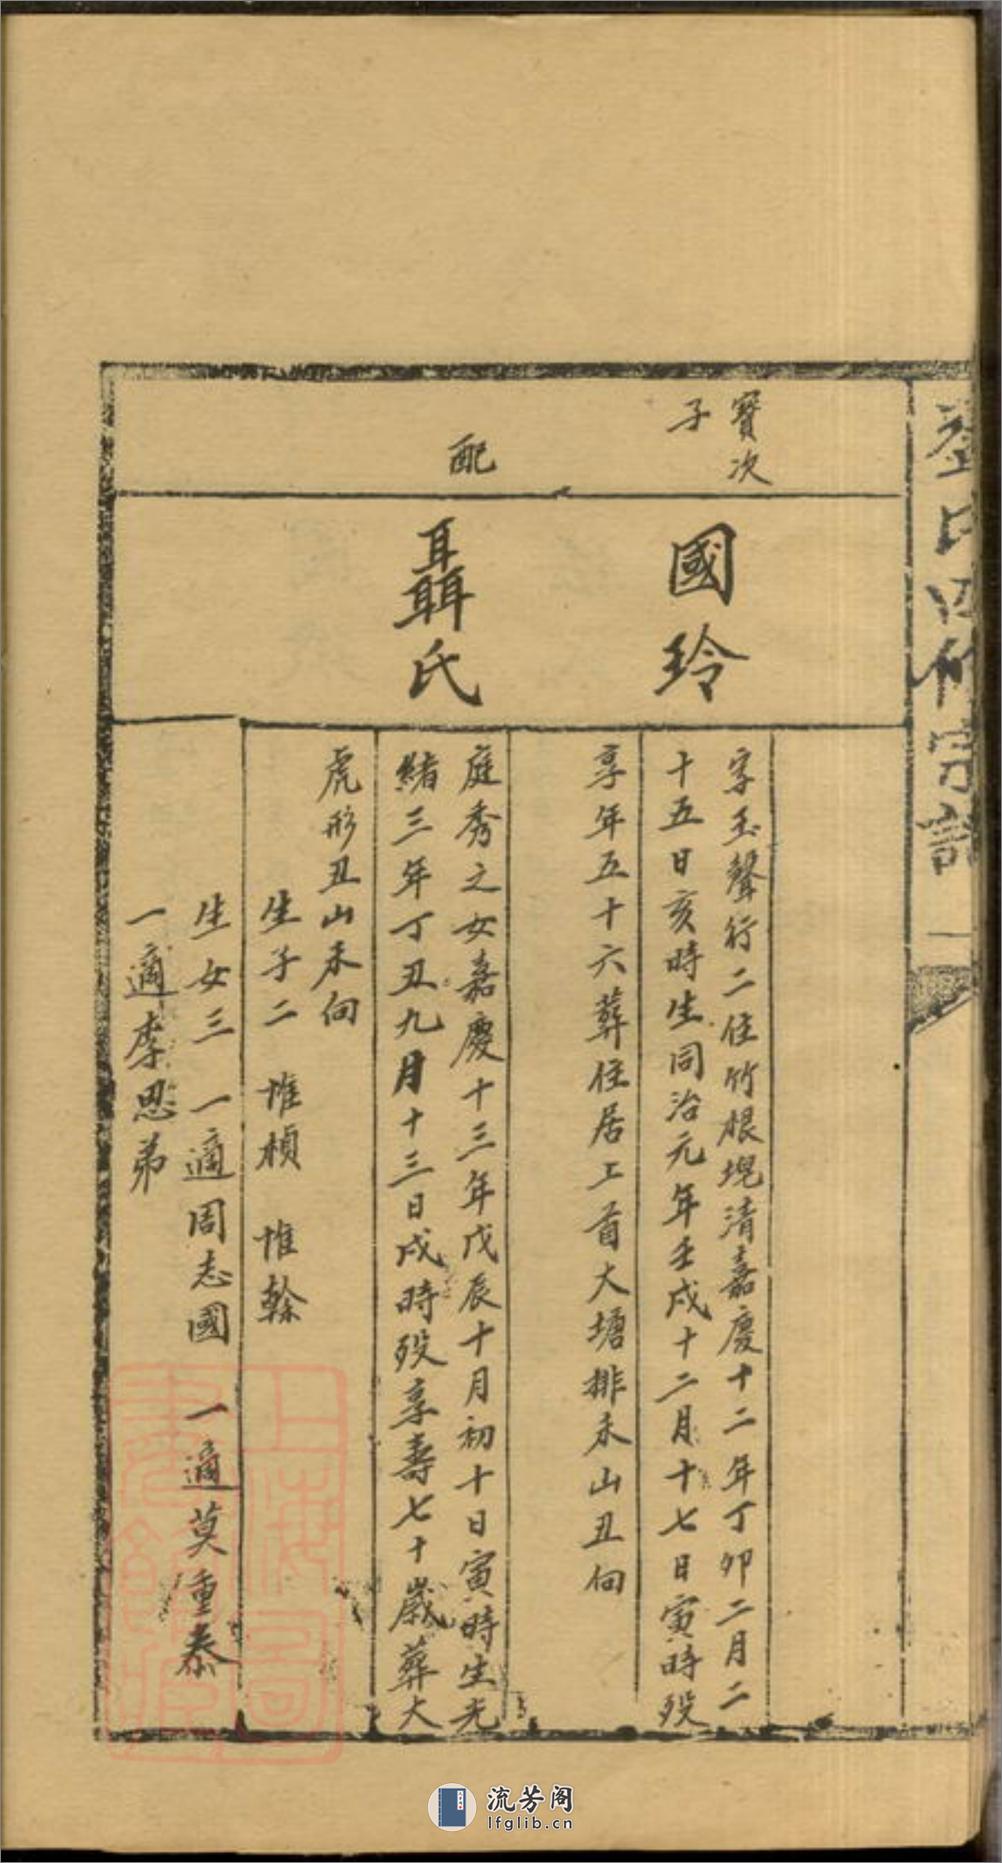 氏四修宗譜 一
寶次
子
國玲
字玉聲行二住竹根堭清嘉慶十二年丁卯二月二
十五日亥時生同治元年壬戌十二月十七日寅時歿
享年五十六葬住居上首大塘排未山丑向
配
聶氏
庭秀之女嘉慶十三年戊辰十月初十日寅時生光
緒三年丁丑九月十三日戌時歿享壽七十歲葬大
虎形丑山未向
生子二 惟楨 惟榦
生女三 一適周志國 一適莫重泰
一適李恩弟
上海圖書館藏
流芳阁
lfglib.cn